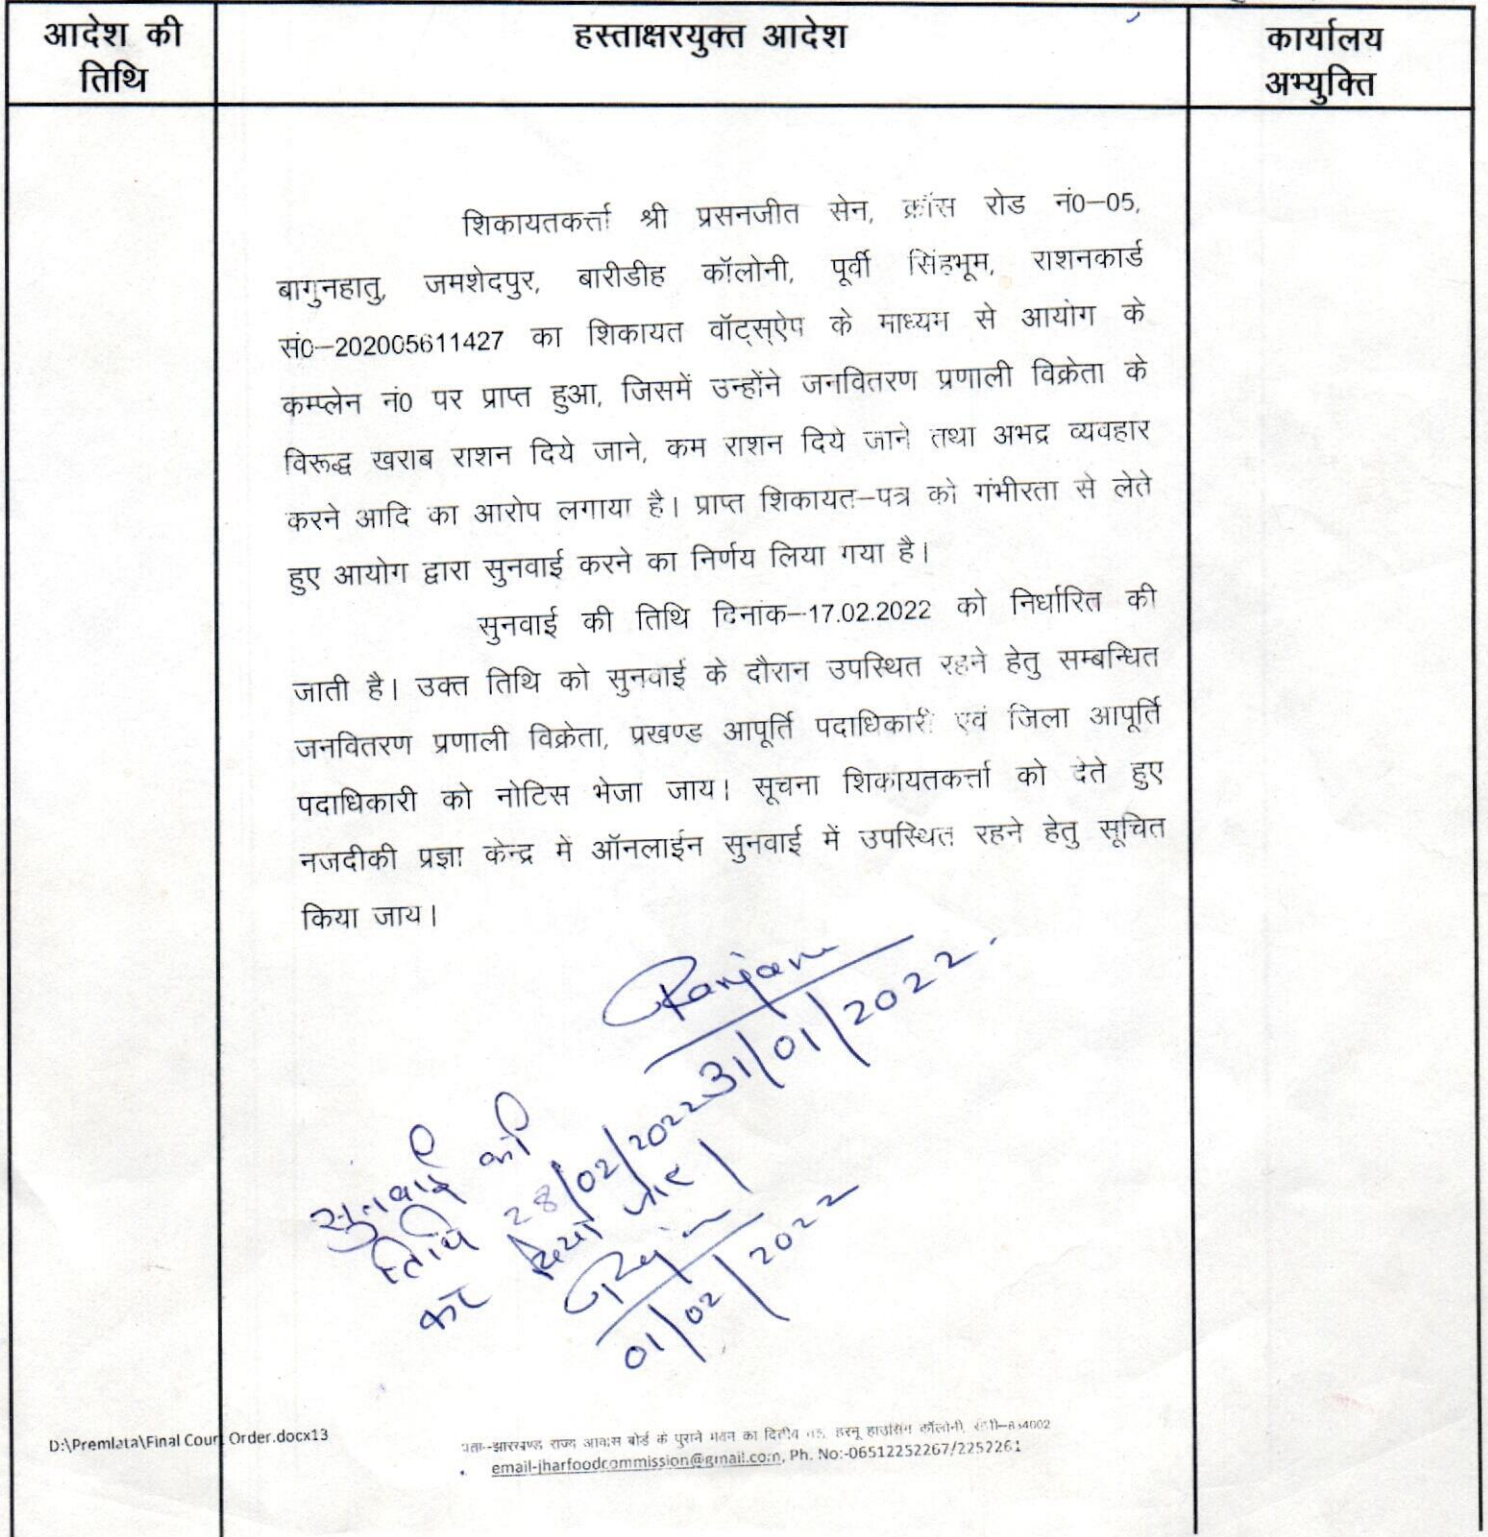 आदेश की
तिथि
हस्ताक्षरयुक्त आदेश
कार्यालय
अभ्युक्ति
शिकायतकर्त्ता श्री प्रसनजीत सेन, क्रॉस रोड नं0–05,
बागुनहातु, जमशेदपुर, बारीडीह कॉलोनी, पूर्वी सिंहभूम, राशनकार्ड
सं0–202005611427 का शिकायत वॉट्स्ऐप के माध्यम से आयोग के
कम्प्लेन नं0 पर प्राप्त हुआ, जिसमें उन्होंने जनवितरण प्रणाली विक्रेता के
विरूद्ध खराब राशन दिये जाने, कम राशन दिये जाने तथा अभद्र व्यवहार
करने आदि का आरोप लगाया है। प्राप्त शिकायत–पत्र को गंभीरता से लेते
हुए आयोग द्वारा सुनवाई करने का निर्णय लिया गया है।
सुनवाई की तिथि दिनांक–17.02.2022 को निर्धारित की
जाती है। उक्त तिथि को सुनवाई के दौरान उपस्थित रहने हेतु सम्बन्धित
जनवितरण प्रणाली विक्रेता, प्रखण्ड आपूर्ति पदाधिकारी एवं जिला आपूर्ति
पदाधिकारी को नोटिस भेजा जाय। सूचना शिकायतकर्त्ता को देते हुए
नजदीकी प्रज्ञा केन्द्र में ऑनलाईन सुनवाई में उपस्थित रहने हेतु सूचित
किया जाय।
Ranjan
31/01/2022
सुनवाई की
तिथि 28/02/2022
को दिया जाए।
01/02/2022
D:\Premlata\Final Court Order.docx13
पता–झारखण्ड राज्य आवास बोर्ड के पुराने भवन का द्वितीय हरमू हाउसिंग कॉलोनी, राँची–834002
email-jharfoodcommission@gmail.com, Ph. No:-06512252267/2252261